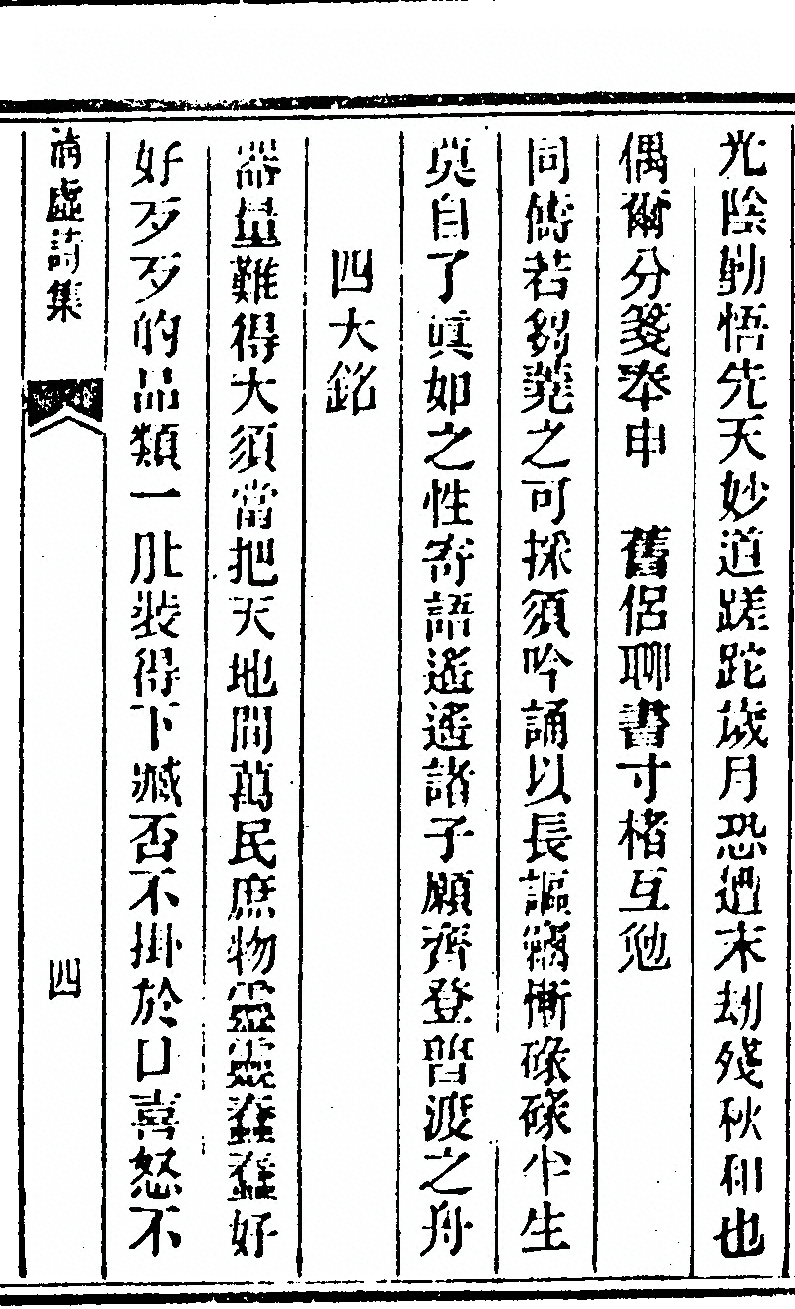 光陰勤悟先天妙道蹉跎歲月恐過末刼殘秋和也
偶爾分箋奉申　舊侶聊書寸楮互勉
同儔若芻蕘之可採須吟誦以長謳竊慚碌碌半生
莫自了眞如之性寄語遙遙諸子願齊登普渡之舟
四大銘
器量難得大須當把天地間萬民庶物靈靈蠢蠢好
好歹歹的品類一肚裝得下臧否不掛於口喜怒不
清虛詩集
四